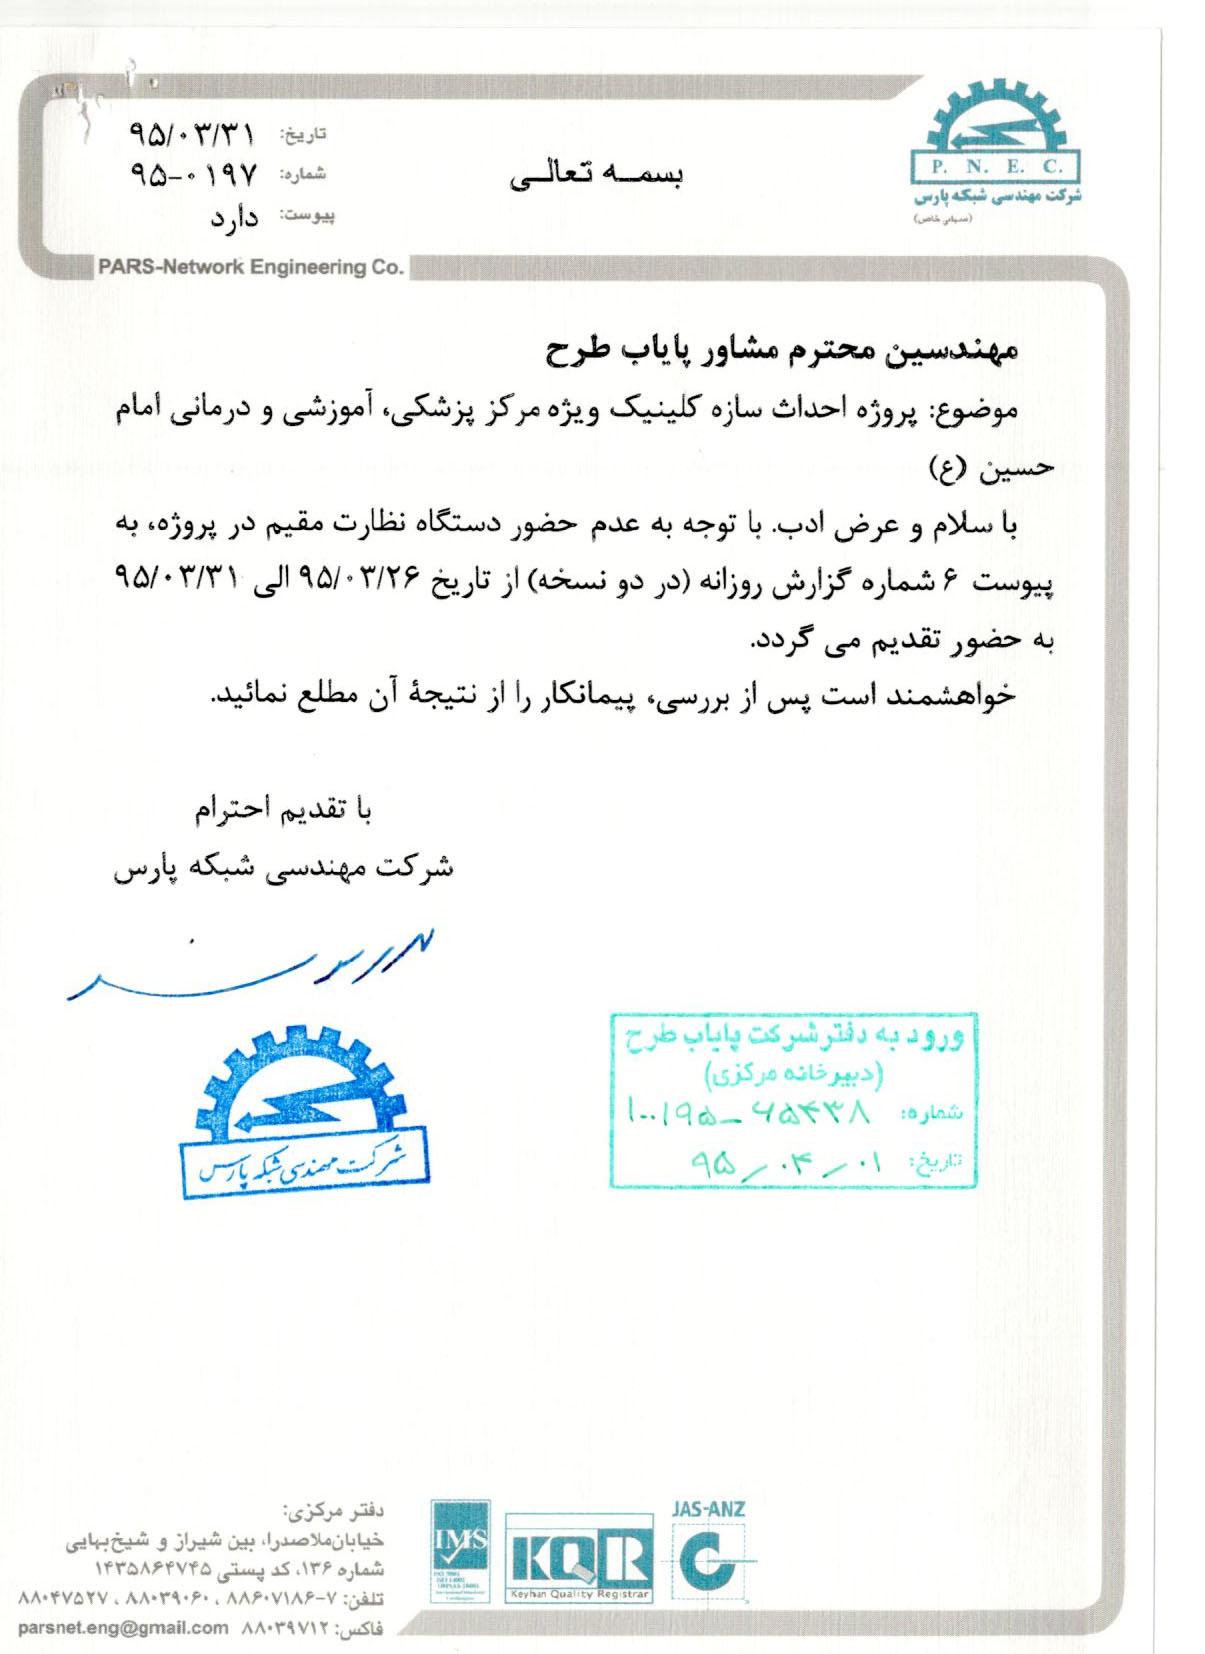 P. N. E. C.
شرکت مهندسی شبکه پارس
(سهامی خاص)
تاریخ: ۹۵/۰۳/۳۱
شماره: ۹۵-۰۱۹۷
پیوست: دارد
بسمه تعالی
PARS-Network Engineering Co.
مهندسین محترم مشاور پایاب طرح
موضوع: پروژه احداث سازه کلینیک ویژه مرکز پزشکی، آموزشی و درمانی امام
حسین (ع)
با سلام و عرض ادب. با توجه به عدم حضور دستگاه نظارت مقیم در پروژه، به
پیوست ۶ شماره گزارش روزانه (در دو نسخه) از تاریخ ۹۵/۰۳/۲۶ الی ۹۵/۰۳/۳۱
به حضور تقدیم می گردد.
خواهشمند است پس از بررسی، پیمانکار را از نتیجۀ آن مطلع نمائید.
با تقدیم احترام
شرکت مهندسی شبکه پارس
شرکت مهندسی شبکه پارس
ورود به دفتر شرکت پایاب طرح
(دبیرخانه مرکزی)
شماره:
تاریخ: ۹۵/۰۴/۰۱
دفتر مرکزی:
خیابان‌ملاصدرا، بین شیراز و شیخ‌بهایی
شماره ۱۳۶، کد پستی ۱۴۳۵۸۶۴۷۴۵
تلفن: ۷-۸۸۶۰۷۱۸۶ ، ۸۸۰۳۹۰۶۰ ، ۸۸۰۴۷۵۲۷
فاکس: ۸۸۰۳۹۷۱۲ parsnet.eng@gmail.com
IMS
KQR
Keyhan Quality Registrar
JAS-ANZ